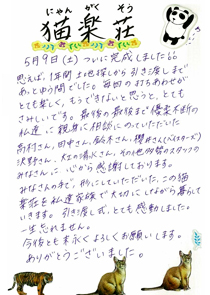 にゃん がく そう
猫楽荘
5月9日(土)ついに完成しました。
思えば、1年間土地探しから引き渡しまで
あっとゆう間でした。毎回の打ちあわせが
とても楽しく、もうできないと思うと、とても
さみしいです。最初の最後まで優柔不断の
私達に親身に相談にのっていただいた
高村さん、田中さん、鈴木さん、櫻井さん(ベイスターズ)
沢野さん、大工の清水さん、その他多勢のスタッフの
みなさんに心から感謝しております。
みなさんの手で、形にしていただいた、この猫
楽荘を私達家族で大切にしながら暮らして
いきます。引き渡し式、とても感動しました。
一生忘れません。
今後とも末永くよろしくお願いします。
ありがとうございました。